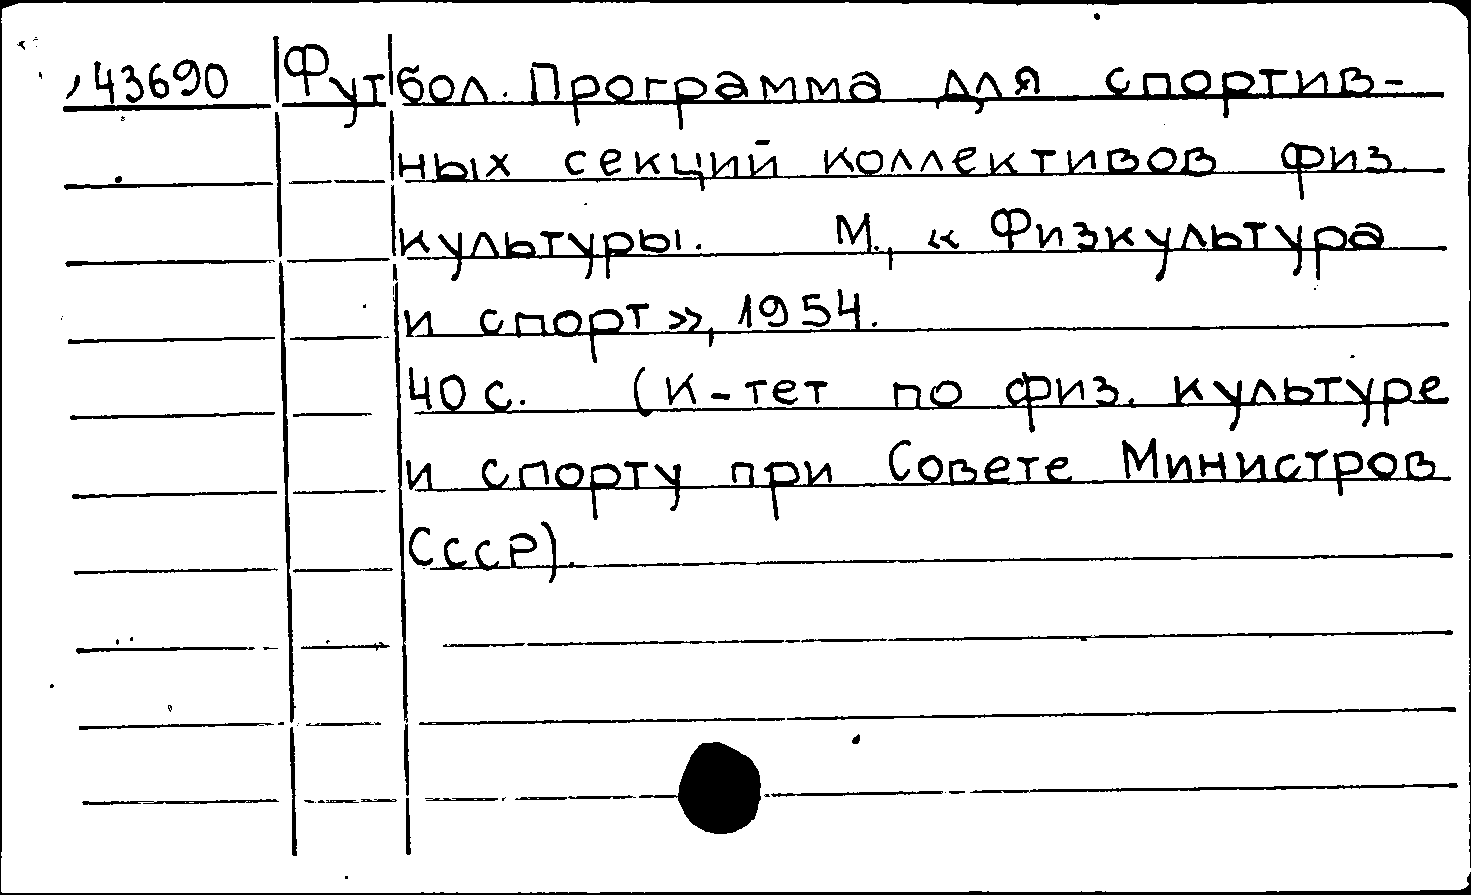 43690 Футбол. Программа для спортив-
ных секций коллективов физ.
культуры. М., « Физкультура
и спорт », 1954.
40 с. (К-тет по физ. культуре
и спорту при Совете Министров
СССР).